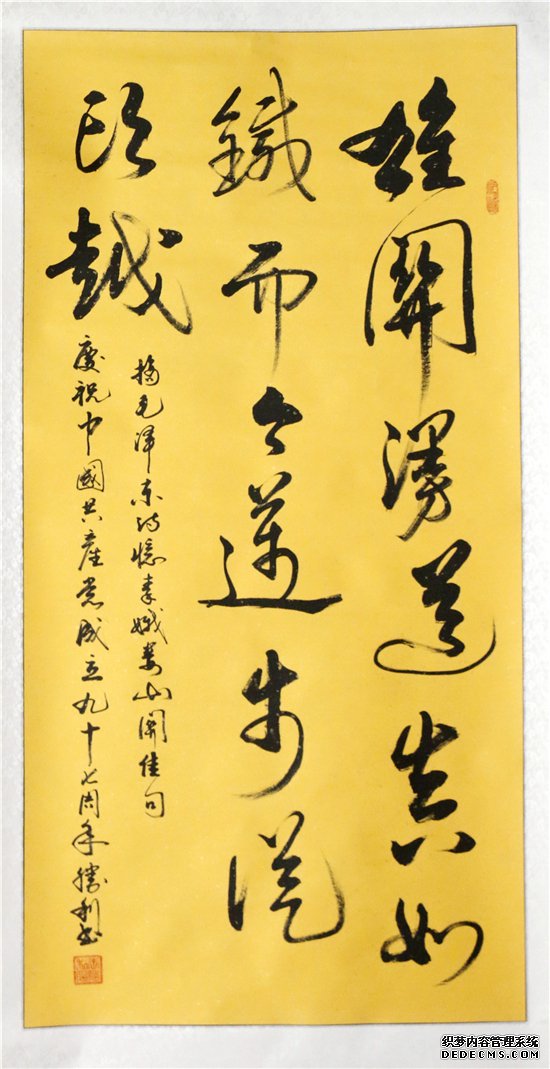 雄關漫道真如
鐵而今邁步從
頭越
摘毛澤東詩憶秦娥婁山關佳句
慶祝中國共產党成立九十七周年勝利書
织梦内容管理系统
DEDECMS.COM